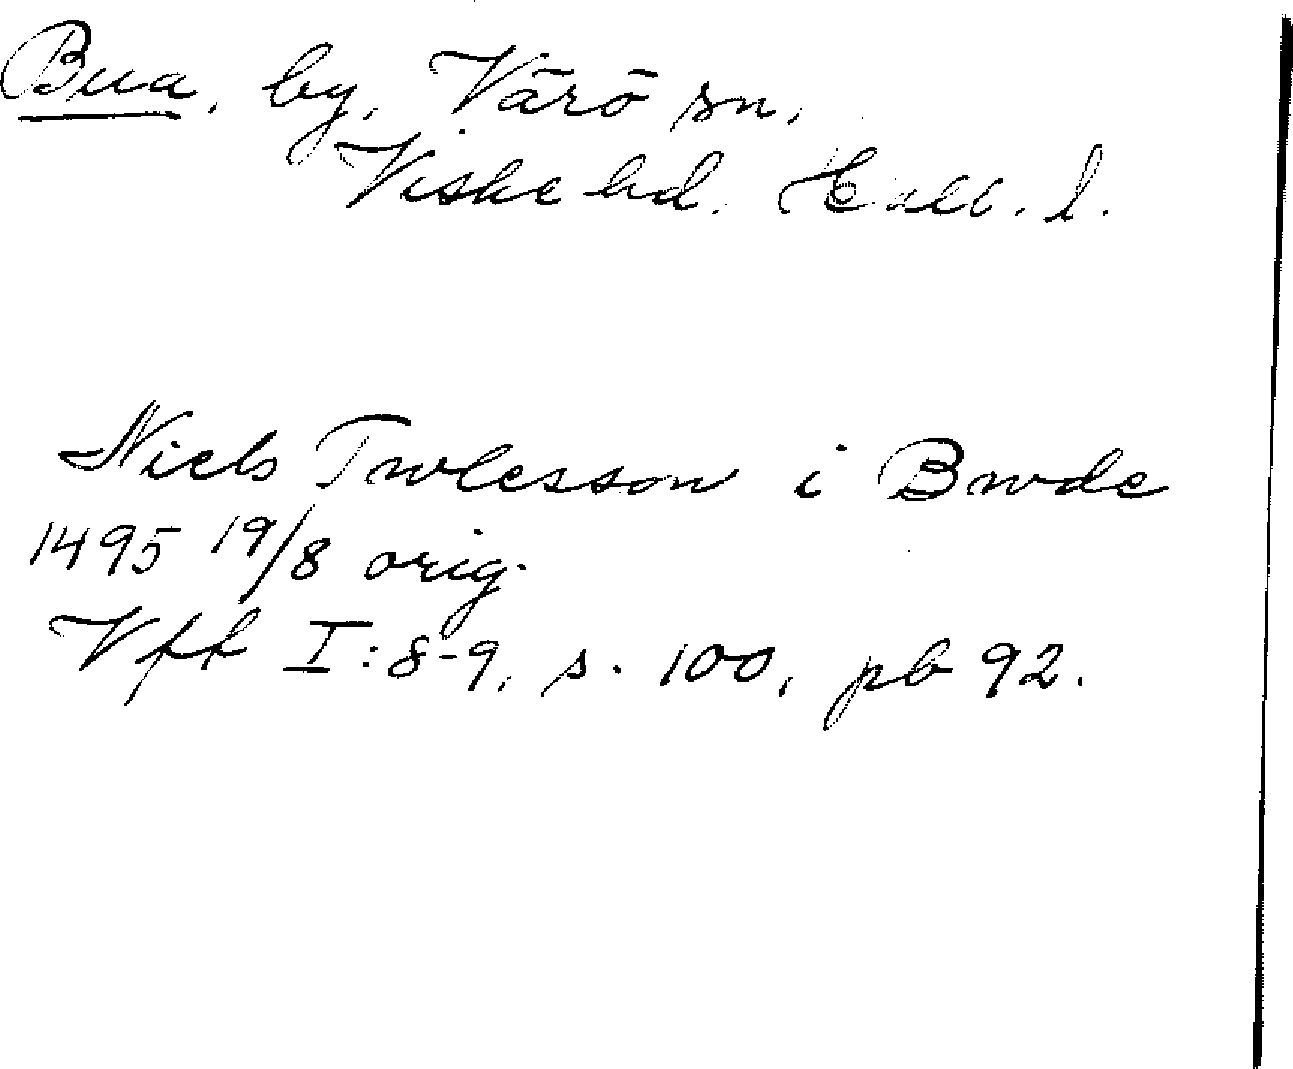 Bua, by, Värö sn,
Viske hd. Hall. l.
Niels Twlesson i Bwde
1495 19/8 orig.
Vff I:8-9, s. 100, pb 92.